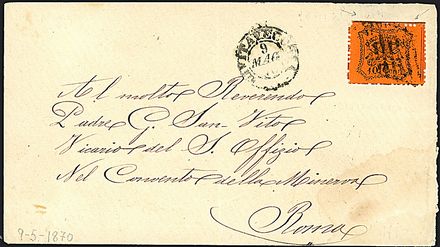 CIVITAVECCHIA
9
MAG
Al molto Reverendo
Padre G. San Vito
Vicario del S. Offizio
Nel Convento della Minerva
Roma
9-5-1870